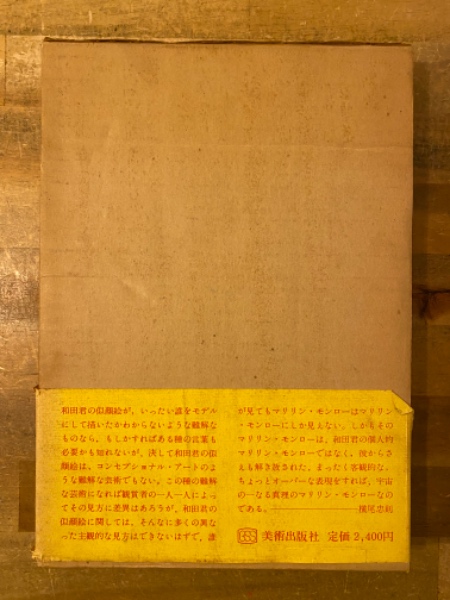 和田君の似顔絵が、いったい誰をモデル
にして描いたかわからないような難解な
ものなら、もしかすればある種の言葉も
必要かも知れないが、決して和田君の似
顔絵は、コンセプショナル・アートのよ
うな難解な芸術でもない。この種の難解
な芸術になれば観賞者の一人一人によっ
てその見方に差異はあろうが、和田君の
似顔絵に関しては、そんなに多くの異な
った主観的な見方はできないはずで、誰
が見てもマリリン・モンローはマリリン
・モンローにしか見えない。しかもその
マリリン・モンローは、和田君の個人的
マリリン・モンローではなく、彼からさ
えも解き放された、まったく客観的な、
ちょっとオーバーな表現をすれば、宇宙
の一なる真理のマリリン・モンローなの
である。――――横尾忠則
BSS 美術出版社 定価2,400円